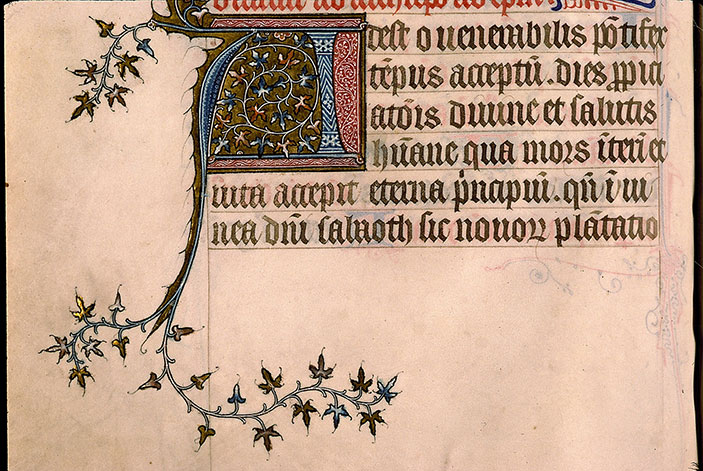 Adest o uenerabilis põtifex
tẽpus acceptũ. dies ꝓpici
atõis diuine et salutis
hũane qua mors ĩteritũ et
uita accepit eterna pͥncipiũ. qñ ĩ ui
nea dñi sabaoth sic nouoꝝ plãtatio